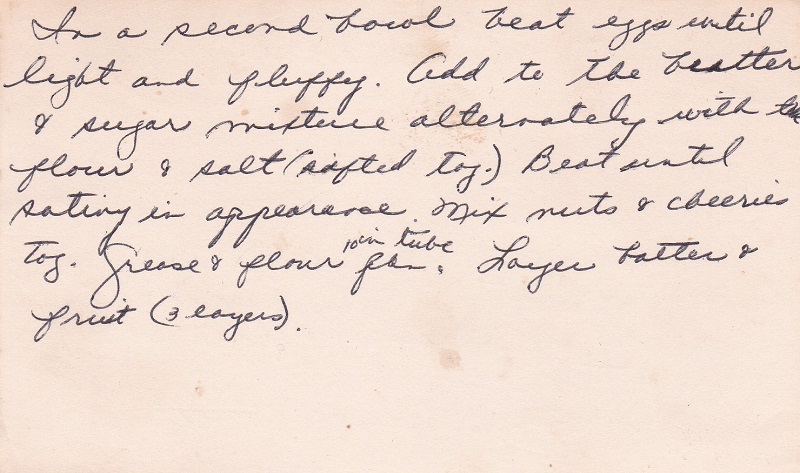 In a second bowl beat eggs until
light and fluffy. Add to the beatter
& sugar mixture alternately with the
flour & salt (sifted tog.) Beat until
satiny in appearance. Mix nuts & cheeries
tog. Grease & flour 10 in tube pan. Layer batter &
fruit (3 layers).